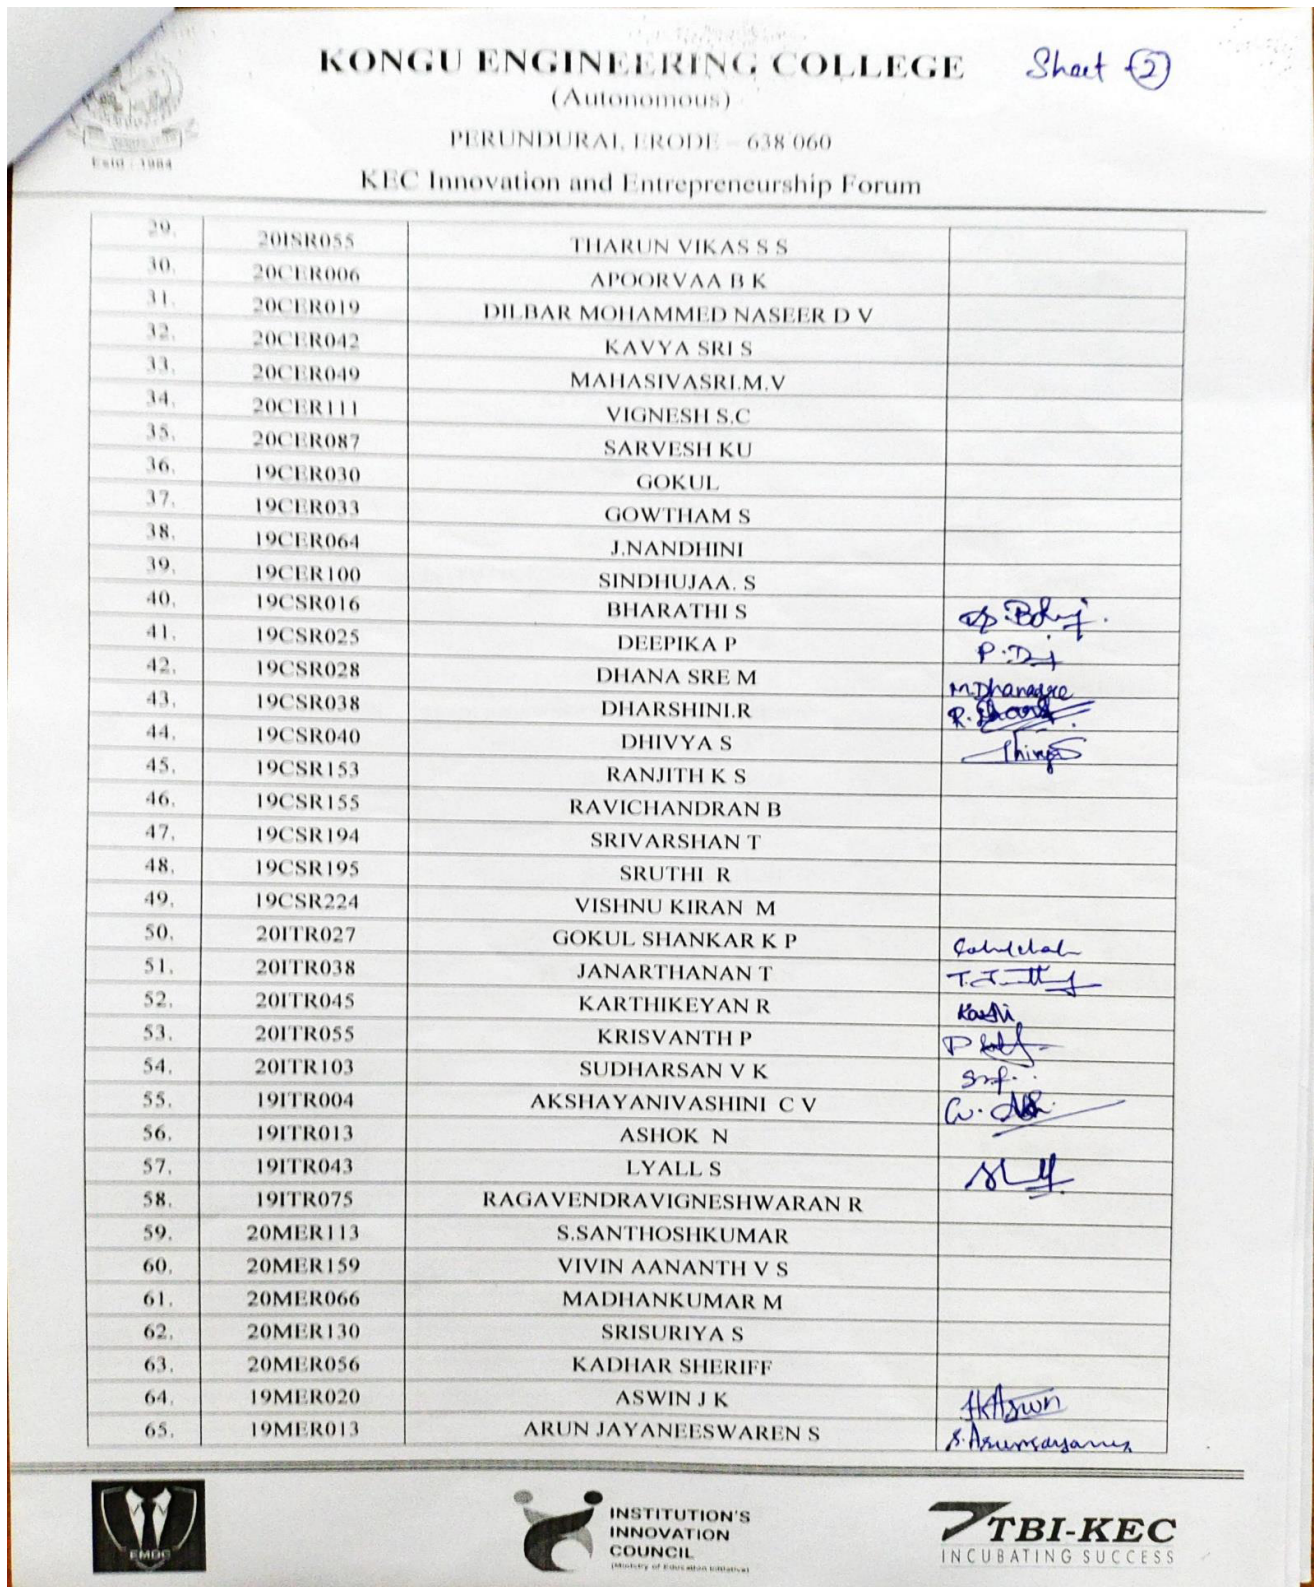 KONGU ENGINEERING COLLEGE Sheet -②
(Autonomous)
PERUNDURAI, ERODE – 638 060
Estd : 1984
KEC Innovation and Entrepreneurship Forum
29. 20ISR055 THARUN VIKAS S S
30. 20CER006 APOORVAA B K
31. 20CER019 DILBAR MOHAMMED NASEER D V
32. 20CER042 KAVYA SRI S
33. 20CER049 MAHASIVASRI.M.V
34. 20CER111 VIGNESH S.C
35. 20CER087 SARVESH KU
36. 19CER030 GOKUL
37. 19CER033 GOWTHAM S
38. 19CER064 J.NANDHINI
39. 19CER100 SINDHUJAA. S
40. 19CSR016 BHARATHI S
41. 19CSR025 DEEPIKA P
42. 19CSR028 DHANA SRE M M.Dhanasre
43. 19CSR038 DHARSHINI.R
44. 19CSR040 DHIVYA S
45. 19CSR153 RANJITH K S
46. 19CSR155 RAVICHANDRAN B
47. 19CSR194 SRIVARSHAN T
48. 19CSR195 SRUTHI R
49. 19CSR224 VISHNU KIRAN M
50. 20ITR027 GOKUL SHANKAR K P
51. 20ITR038 JANARTHANAN T
52. 20ITR045 KARTHIKEYAN R
53. 20ITR055 KRISVANTH P
54. 20ITR103 SUDHARSAN V K
55. 19ITR004 AKSHAYANIVASHINI C V
56. 19ITR013 ASHOK N
57. 19ITR043 LYALL S
58. 19ITR075 RAGAVENDRAVIGNESHWARAN R
59. 20MER113 S.SANTHOSHKUMAR
60. 20MER159 VIVIN AANANTH V S
61. 20MER066 MADHANKUMAR M
62. 20MER130 SRISURIYA S
63. 20MER056 KADHAR SHERIFF
64. 19MER020 ASWIN J K
65. 19MER013 ARUN JAYANEESWAREN S
EMDC
INSTITUTION'S
INNOVATION
COUNCIL
(Ministry of Education Initiative)
TBI-KEC
INCUBATING SUCCESS